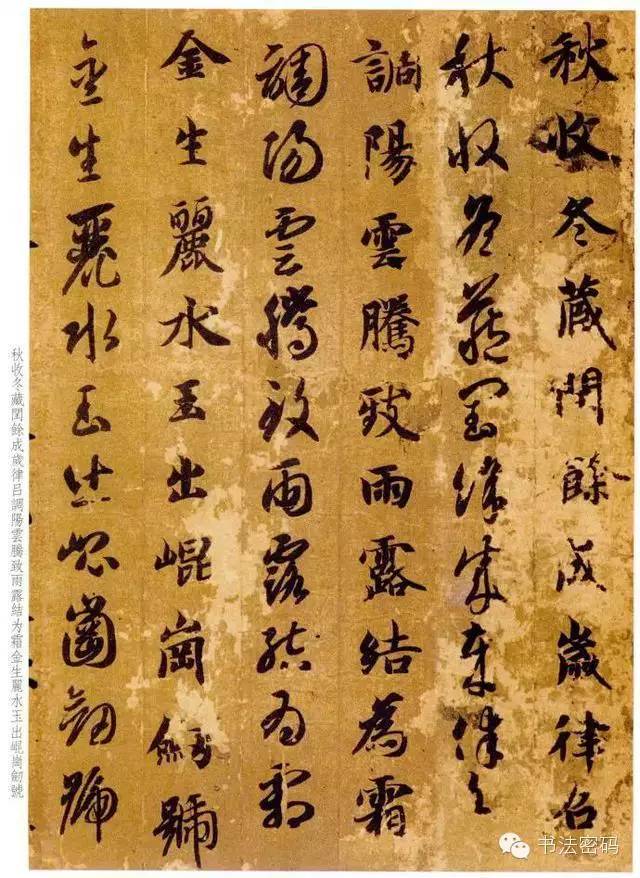 秋收冬藏閏餘成歲律呂
秋收冬藏閏餘成歲律呂
調陽雲騰致雨露結為霜
調陽雲騰致雨露結為霜
金生麗水玉出崐崗劒號
金生麗水玉出崐崗劒號
秋收冬藏閏餘成歲律呂調陽雲騰致雨露结为霜金生麗水玉出崐崗劒號
书法密码